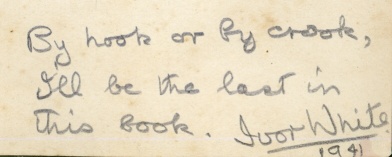 By hook or by crook,
I'll be the last in
this book. Ivor White
1941